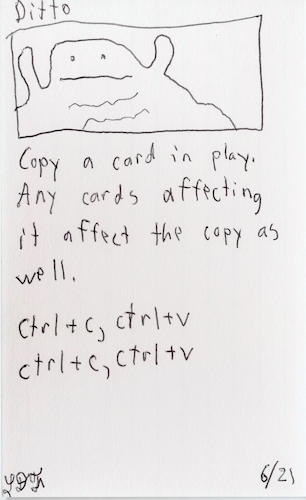 Ditto
Copy a card in play.
Any cards affecting
it affect the copy as
well.
ctrl+c, ctrl+v
ctrl+c, ctrl+v
6/21